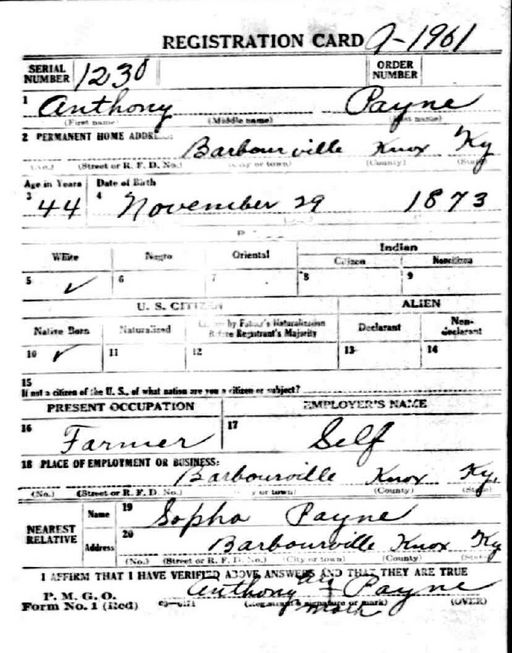 REGISTRATION CARD A-1961
SERIAL NUMBER 1230 ORDER NUMBER
1 Anthony Payne
(First name) (Middle name) (Last name)
2 PERMANENT HOME ADDRESS: Barbourville Knox Ky
(No.) (Street or R. F. D. No.) (City or town) (County) (State)
Age in Years Date of Birth
3 44 4 November 29 1873
Indian
White Negro Oriental Citizen Noncitizen
5 ✓ 6 7 8 9
U. S. CITIZEN ALIEN
Native Born Naturalized Citizen by Father's Naturalization Before Registrant's Majority Declarant Non-declarant
10 ✓ 11 12 13 14
15
If not a citizen of the U. S., of what nation are you a citizen or subject?
PRESENT OCCUPATION EMPLOYER'S NAME
16 Farmer 17 Self
18 PLACE OF EMPLOYMENT OR BUSINESS:
Barbourville Knox Ky.
(No.) (Street or R. F. D. No.) (City or town) (County) (State)
NEAREST RELATIVE Name 19 Sopha Payne
Address 20 Barbourville Knox Ky
(No.) (Street or R. F. D. No.) (City or town) (County) (State)
I AFFIRM THAT I HAVE VERIFIED ABOVE ANSWERS AND THAT THEY ARE TRUE
P. M. G. O.
Form No. 1 (Red) Anthony his Payne
mark
(Registrant's signature or mark) (OVER)